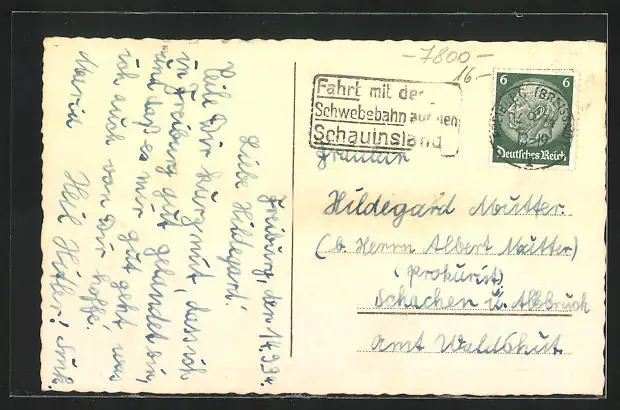 -7800-
16.-
Fahrt mit der
Schwebebahn auf den
Schauinsland
6 6
Deutsches Reich
Fräulein
Hildegard Mutter.
(b. Herrn Albert Mutter)
(Prokurist)
Schachen u. Albbruck
Amt Waldshut.
Freiburg, den 14.9.34.
Liebe Hildegard!
Teile Dir kurz mit, dass ich
in Freiburg gut gelandet bin,
und daß es mir gut geht was
ich auch von Dir hoffe.
Heil Hitler!
Maria